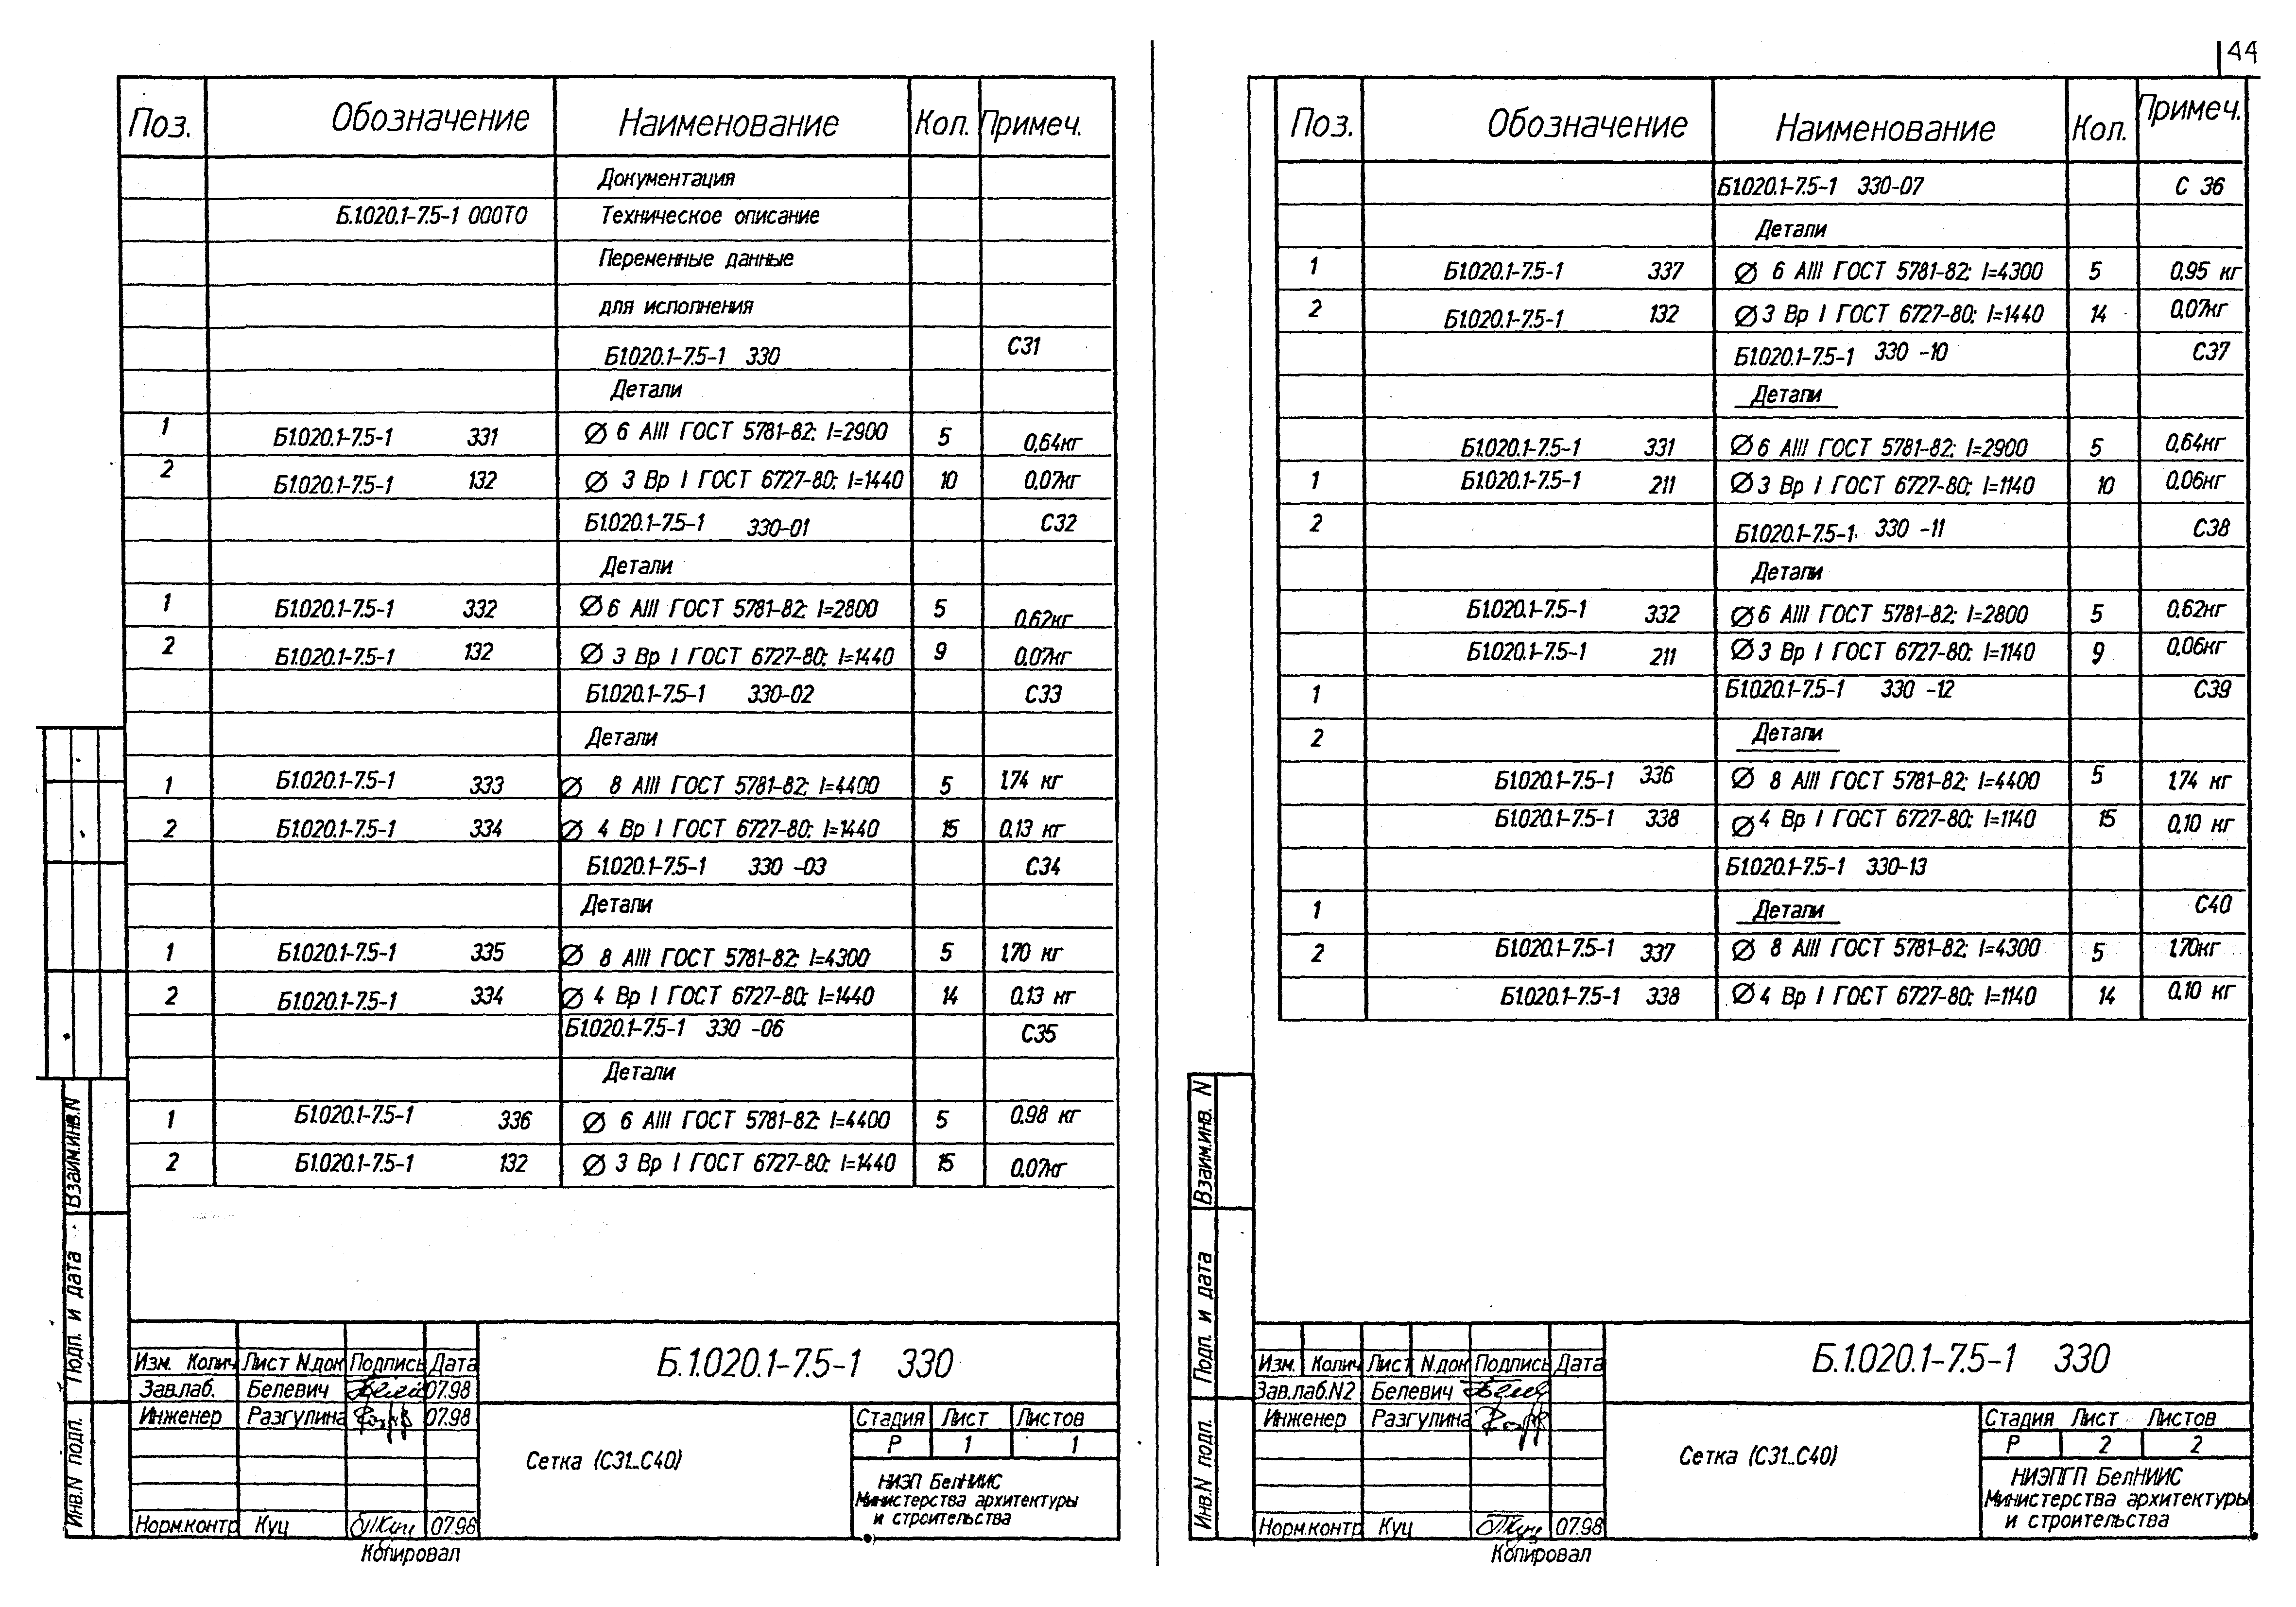 44
Поз. Обозначение Наименование Кол. Примеч.
Документация
Б.1.020.1-7.5-1 000ТО Техническое описание
Переменные данные
для исполнения
Б1.020.1-7.5-1 330 С31
Детали
1 Б1.020.1-7.5-1 331 Ø 6 АIII ГОСТ 5781-82; l=2900 5 0,64кг
2 Б1.020.1-7.5-1 132 Ø 3 Вр I ГОСТ 6727-80; l=1440 10 0.07кг
Б1.020.1-7.5-1 330-01 С32
Детали
1 Б1.020.1-7.5-1 332 Ø 6 АIII ГОСТ 5781-82; l=2800 5 0.62кг
2 Б1.020.1-7.5-1 132 Ø 3 Вр I ГОСТ 6727-80; l=1440 9 0.07кг
Б1.020.1-7.5-1 330-02 С33
Детали
1 Б1.020.1-7.5-1 333 Ø 8 АIII ГОСТ 5781-82; l=4400 5 1.74 кг
2 Б1.020.1-7.5-1 334 Ø 4 Вр I ГОСТ 6727-80; l=1440 15 0.13 кг
Б1.020.1-7.5-1 330 -03 С34
Детали
1 Б1.020.1-7.5-1 335 Ø 8 АIII ГОСТ 5781-82; l=4300 5 1.70 кг
2 Б1.020.1-7.5-1 334 Ø 4 Вр I ГОСТ 6727-80; l=1440 14 0.13 кг
Б1.020.1-7.5-1 330 -06 С35
Детали
1 Б1.020.1-7.5-1 336 Ø 6 АIII ГОСТ 5781-82; l=4400 5 0.98 кг
2 Б1.020.1-7.5-1 132 Ø 3 Вр I ГОСТ 6727-80; l=1440 15 0.07кг
Взаим.инв.N
Подп. и дата
Инв.N подп.
Изм. Колич Лист N.док Подпись Дата
Зав.лаб. Белевич 07.98
Инженер Разгулина 07.98
Норм.контр Куц 07.98
Б.1.020.1-7.5-1 330
Сетка (С31..С40)
Стадия Лист Листов
Р 1 1
НИЭП БелНИИС
Министерства архитектуры
и строительства
Копировал
Поз. Обозначение Наименование Кол. Примеч.
Б1.020.1-7.5-1 330-07 С 36
Детали
1 Б1.020.1-7.5-1 337 Ø 6 АIII ГОСТ 5781-82; l=4300 5 0.95 кг
2 Б1.020.1-7.5-1 132 Ø 3 Вр I ГОСТ 6727-80; l=1440 14 0.07кг
Б1.020.1-7.5-1 330 -10 С37
Детали
Б1.020.1-7.5-1 331 Ø 6 АIII ГОСТ 5781-82; l=2900 5 0,64кг
1 Б1.020.1-7.5-1 211 Ø 3 Вр I ГОСТ 6727-80; l=1140 10 0.06кг
2 Б1.020.1-7.5-1. 330 -11 С38
Детали
Б1.020.1-7.5-1 332 Ø 6 АIII ГОСТ 5781-82; l=2800 5 0.62кг
Б1.020.1-7.5-1 211 Ø 3 Вр I ГОСТ 6727-80; l=1140 9 0,06кг
1 Б1.020.1-7.5-1 330 -12 С39
2 Детали
Б1.020.1-7.5-1 336 Ø 8 АIII ГОСТ 5781-82; l=4400 5 1.74 кг
Б1.020.1-7.5-1 338 Ø 4 Вр I ГОСТ 6727-80; l=1140 15 0,10 кг
Б1.020.1-7.5-1 330-13
1 Детали С40
2 Б1.020.1-7.5-1 337 Ø 8 АIII ГОСТ 5781-82; l=4300 5 1.70кг
Б1.020.1-7.5-1 338 Ø 4 Вр I ГОСТ 6727-80; l=1140 14 0.10 кг
Взаим.инв. N
Подп. и дата
Инв.N подп.
Изм. Колич Лист N.док Подпись Дата
Зав.лаб.N2 Белевич
Инженер Разгулина
Норм.контр Куц 07.98
Б.1.020.1-7.5-1 330
Сетка (С31..С40)
Стадия Лист Листов
Р 2 2
НИЭПГП БелНИИС
Министерства архитектуры
и строительства
Копировал